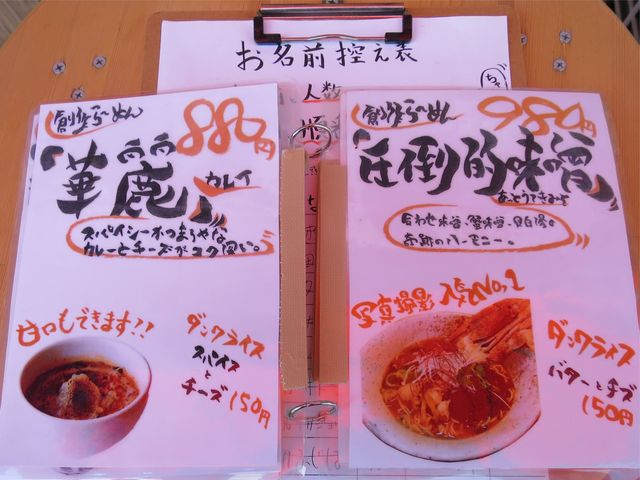 お名前控え表
人数
創作らーめん
880円
「華麗」
カレイ
スパイシーかつまろやか
カレーとチーズがコク深い。
甘口もできます!!
ダンクライス
スパイス
と
チーズ
150円
創作らーめん
980円
「圧倒的味噌」
あっとうてきみそ
合わせ味噌・蟹味噌・
奇跡のハーモニー。
写真撮影 人気No,1
ダンクライス
バターとチーズ
150円